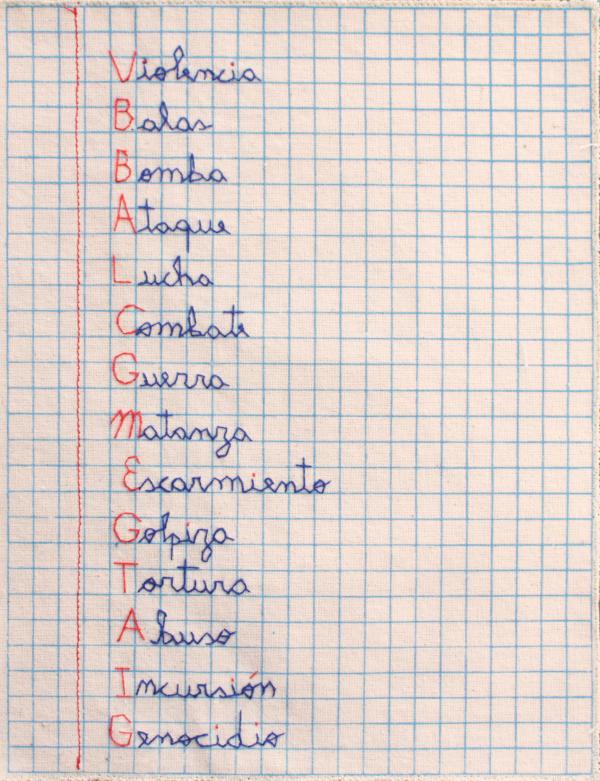 Violencia
Balas
Bomba
Ataque
Lucha
Combate
Guerra
Matanza
Escarmiento
Golpiza
Tortura
Abuso
Incursión
Genocidio